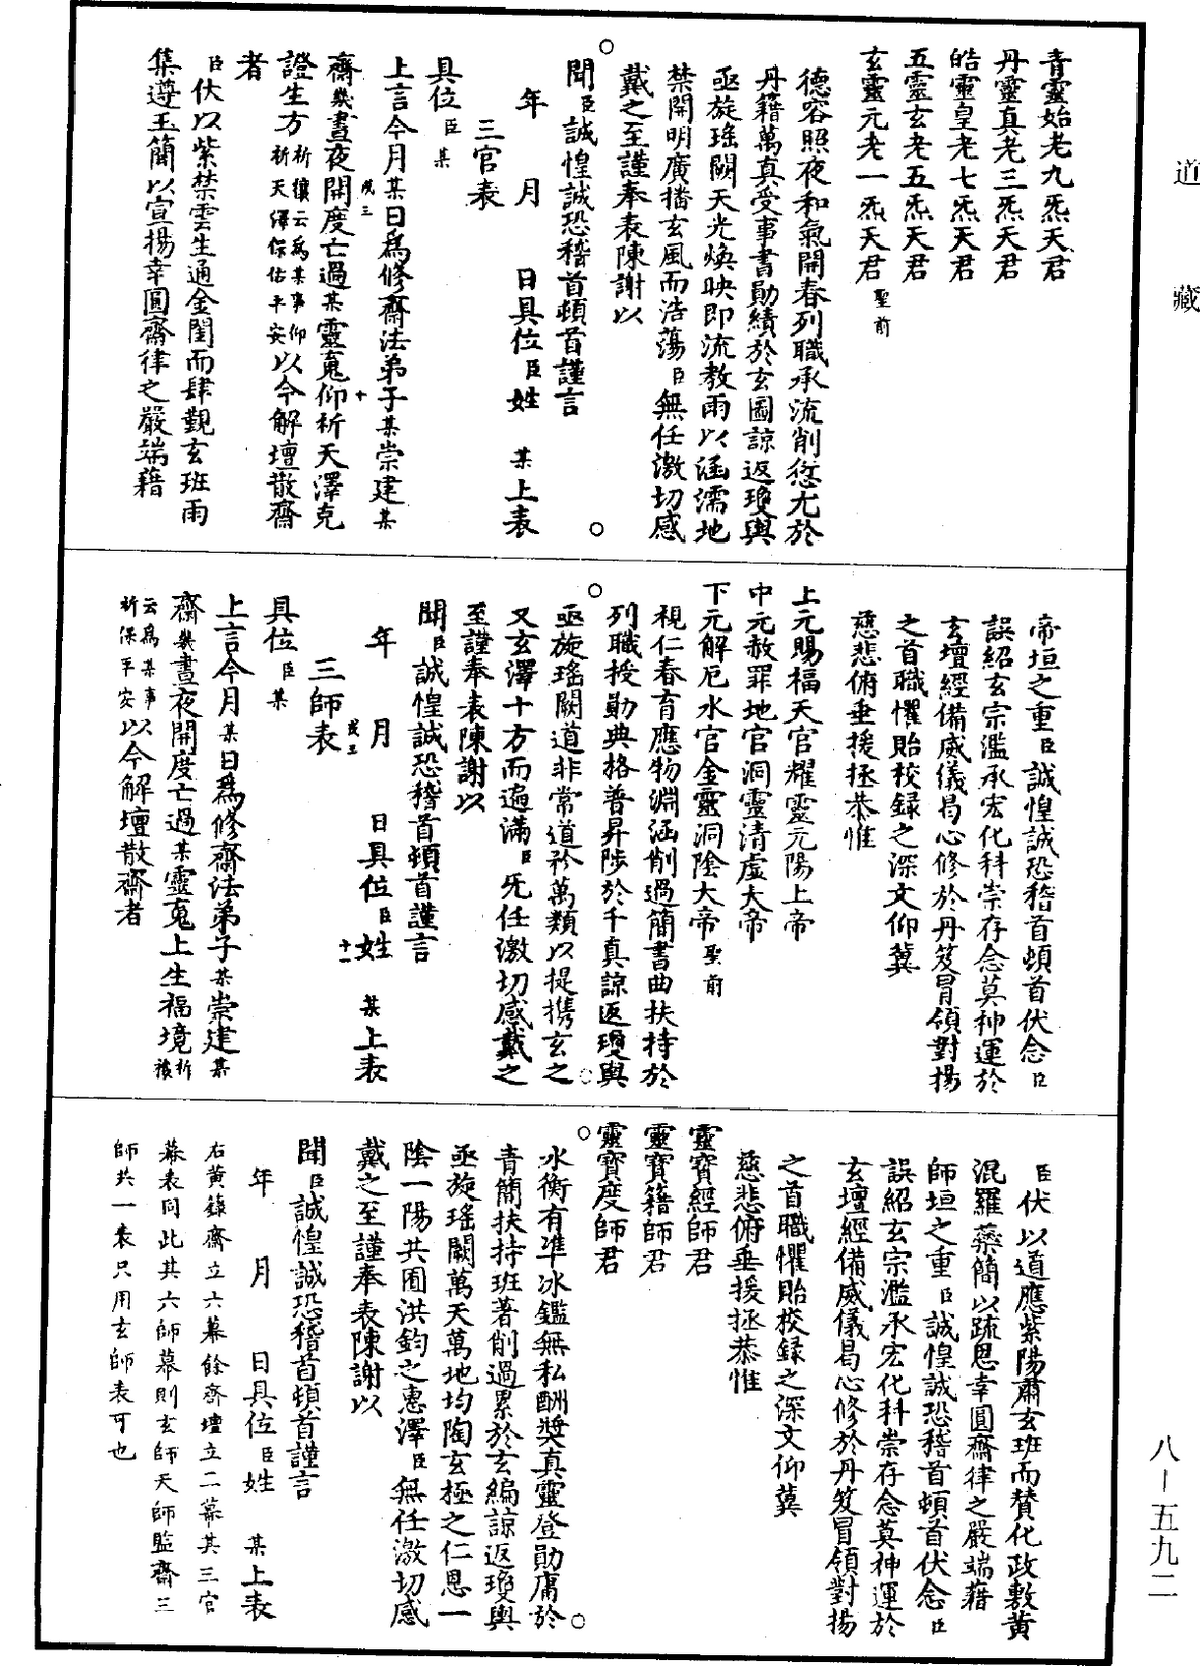 道藏
青靈始老九炁天君
丹靈真老三炁天君
皓靈皇老七炁天君
五靈玄老五炁天君
玄靈元老一炁天君聖前
德容照夜和氣開春列職承流削愆尤於
丹籍萬真受事書勛績於玄圖諒返瓊輿
亟旋瑤闕天光煥映即流教雨以涵濡地
禁開明廣播玄風而浩蕩臣無任激切感
戴之至謹奉表陳謝以
聞臣誠惶誠恐稽首頓首謹言
年 月 日具位臣姓 某上表
三官表
具位臣某
上言今月某日爲修齋法弟子某崇建某
齋幾晝夜開度亡過某靈䰟仰祈天澤克
證生方祈禳云爲某事仰祈天澤保佑平安以今解壇散齋
者
臣伏以紫禁雲生通金閨而肆覲玄班雨
集遵玉簡以宣揚幸圓齋律之嚴端藉
帝垣之重臣誠惶誠恐稽首頓首伏念臣
誤紹玄宗濫承宏化科崇存念莫神運於
玄壇經備威儀曷心修於丹笈冒領對揚
之首職懼貽校録之深文仰冀
慈悲俯垂援拯恭惟
上元賜福天官耀靈元陽上帝
中元赦罪地官洞靈清虛大帝
下元解厄水官金靈洞陰大帝聖前
視仁春育應物淵涵削過簡書曲扶持於
列職授勛典格普昇陟於千真諒返瓊輿
亟旋瑤闕道非常道衿萬類以提携玄之
又玄澤十方而遍滿臣旡任激切感戴之
至謹奉表陳謝以
聞臣誠惶誠恐稽首頓首謹言
年 月 日具位臣姓 某上表
三師表
具位臣某
上言今月某日爲修齋法弟子某崇建某
齋幾晝夜開度亡過某靈䰟上生福境祈禳
云爲某事祈保平安以今解壇散齋者
臣伏以道應紫陽肅玄班而賛化政敷黄
混羅蘂簡以疏恩幸圓齋律之嚴端藉
師垣之重臣誠惶誠恐稽首頓首伏念臣
誤紹玄宗濫承宏化科崇存念莫神運於
玄壇經備威儀曷心修於丹笈冒領對揚
之首職懼貽校録之深文仰冀
慈悲俯垂援拯恭惟
靈寶經師君
靈寶籍師君
靈寶度師君
水衡有準冰鑑無私酬奬真靈登勛庸於
青簡扶持班著削過累於玄編諒返瓊輿
亟旋瑤闕萬天萬地均陶玄極之仁恩一
陰一陽共囿洪鈞之惠澤臣無任激切感
戴之至謹奉表陳謝以
聞臣誠惶誠恐稽首頓首謹言
年 月 日具位臣姓 某上表
右黄籙齋立六幕餘齋壇立二幕其三官
幕表同此其六師幕則玄師天師監齋三
師共一表只用玄師表可也
八—五九二